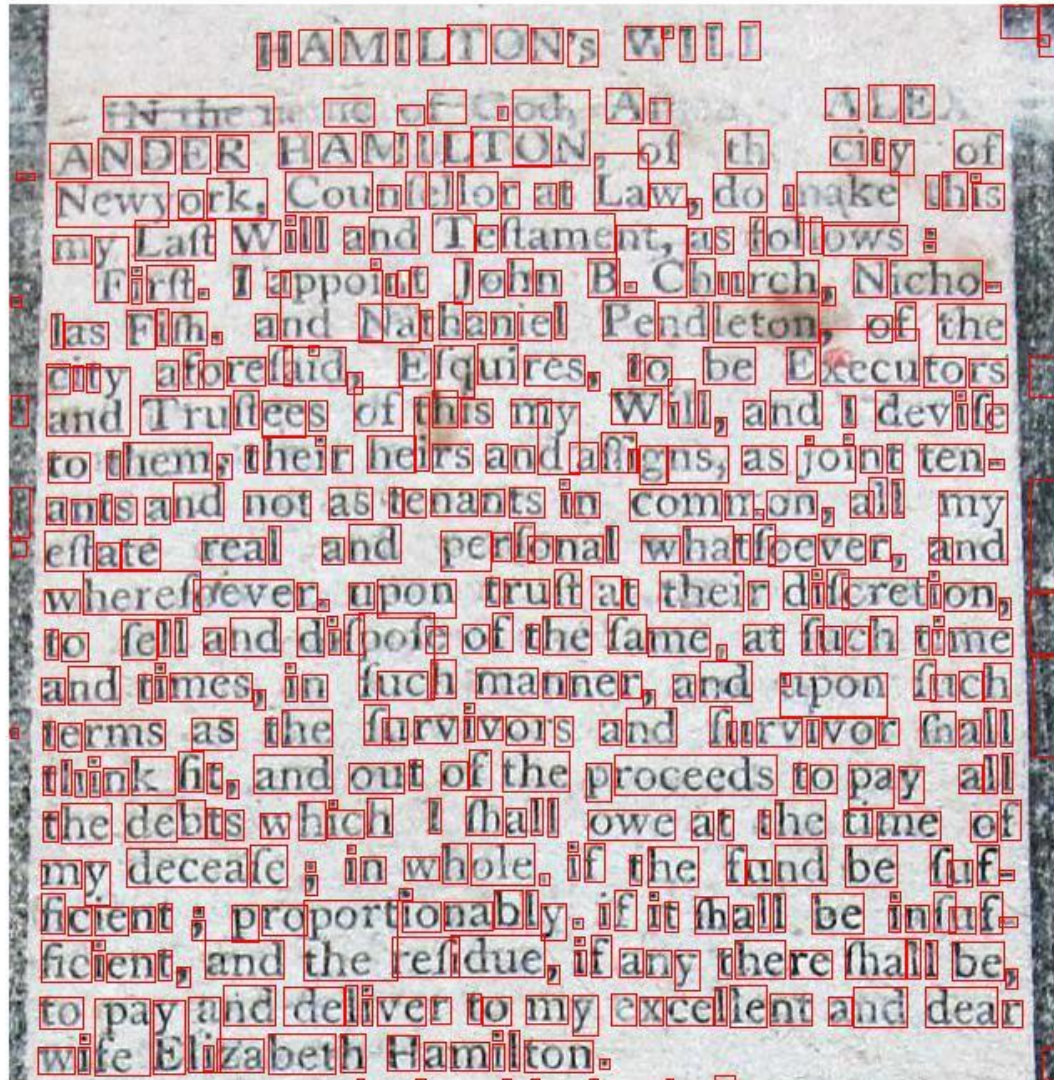 HAMILTON's Will
IN the name of God, Amen. I ALEX-
ANDER HAMILTON, of the city of
Newyork, Counſellor at Law, do make this
my Laſt Will and Teſtament, as follows :
Firſt. I appoint John B. Church, Nicho-
las Fiſh. and Nathaniel Pendleton, of the
city aforeſaid, Eſquires, to be Executors
and Truſtees of this my Will, and I deviſe
to them, their heirs and aſſigns, as joint ten-
ants and not as tenants in common, all my
eſtate real and perſonal whatſoever, and
whereſoever. upon truſt at their diſcretion,
to ſell and diſpoſe of the ſame, at ſuch time
and times, in ſuch manner, and upon ſuch
terms as the ſurvivors and ſurvivor ſhall
think fit, and out of the proceeds to pay all
the debts which I ſhall owe at the time of
my deceaſe ; in whole, if the fund be ſuf-
ficient ; proportionably. if it ſhall be inſuf-
ficient, and the reſidue, if any there ſhall be,
to pay and deliver to my excellent and dear
wife Elizabeth Hamilton.